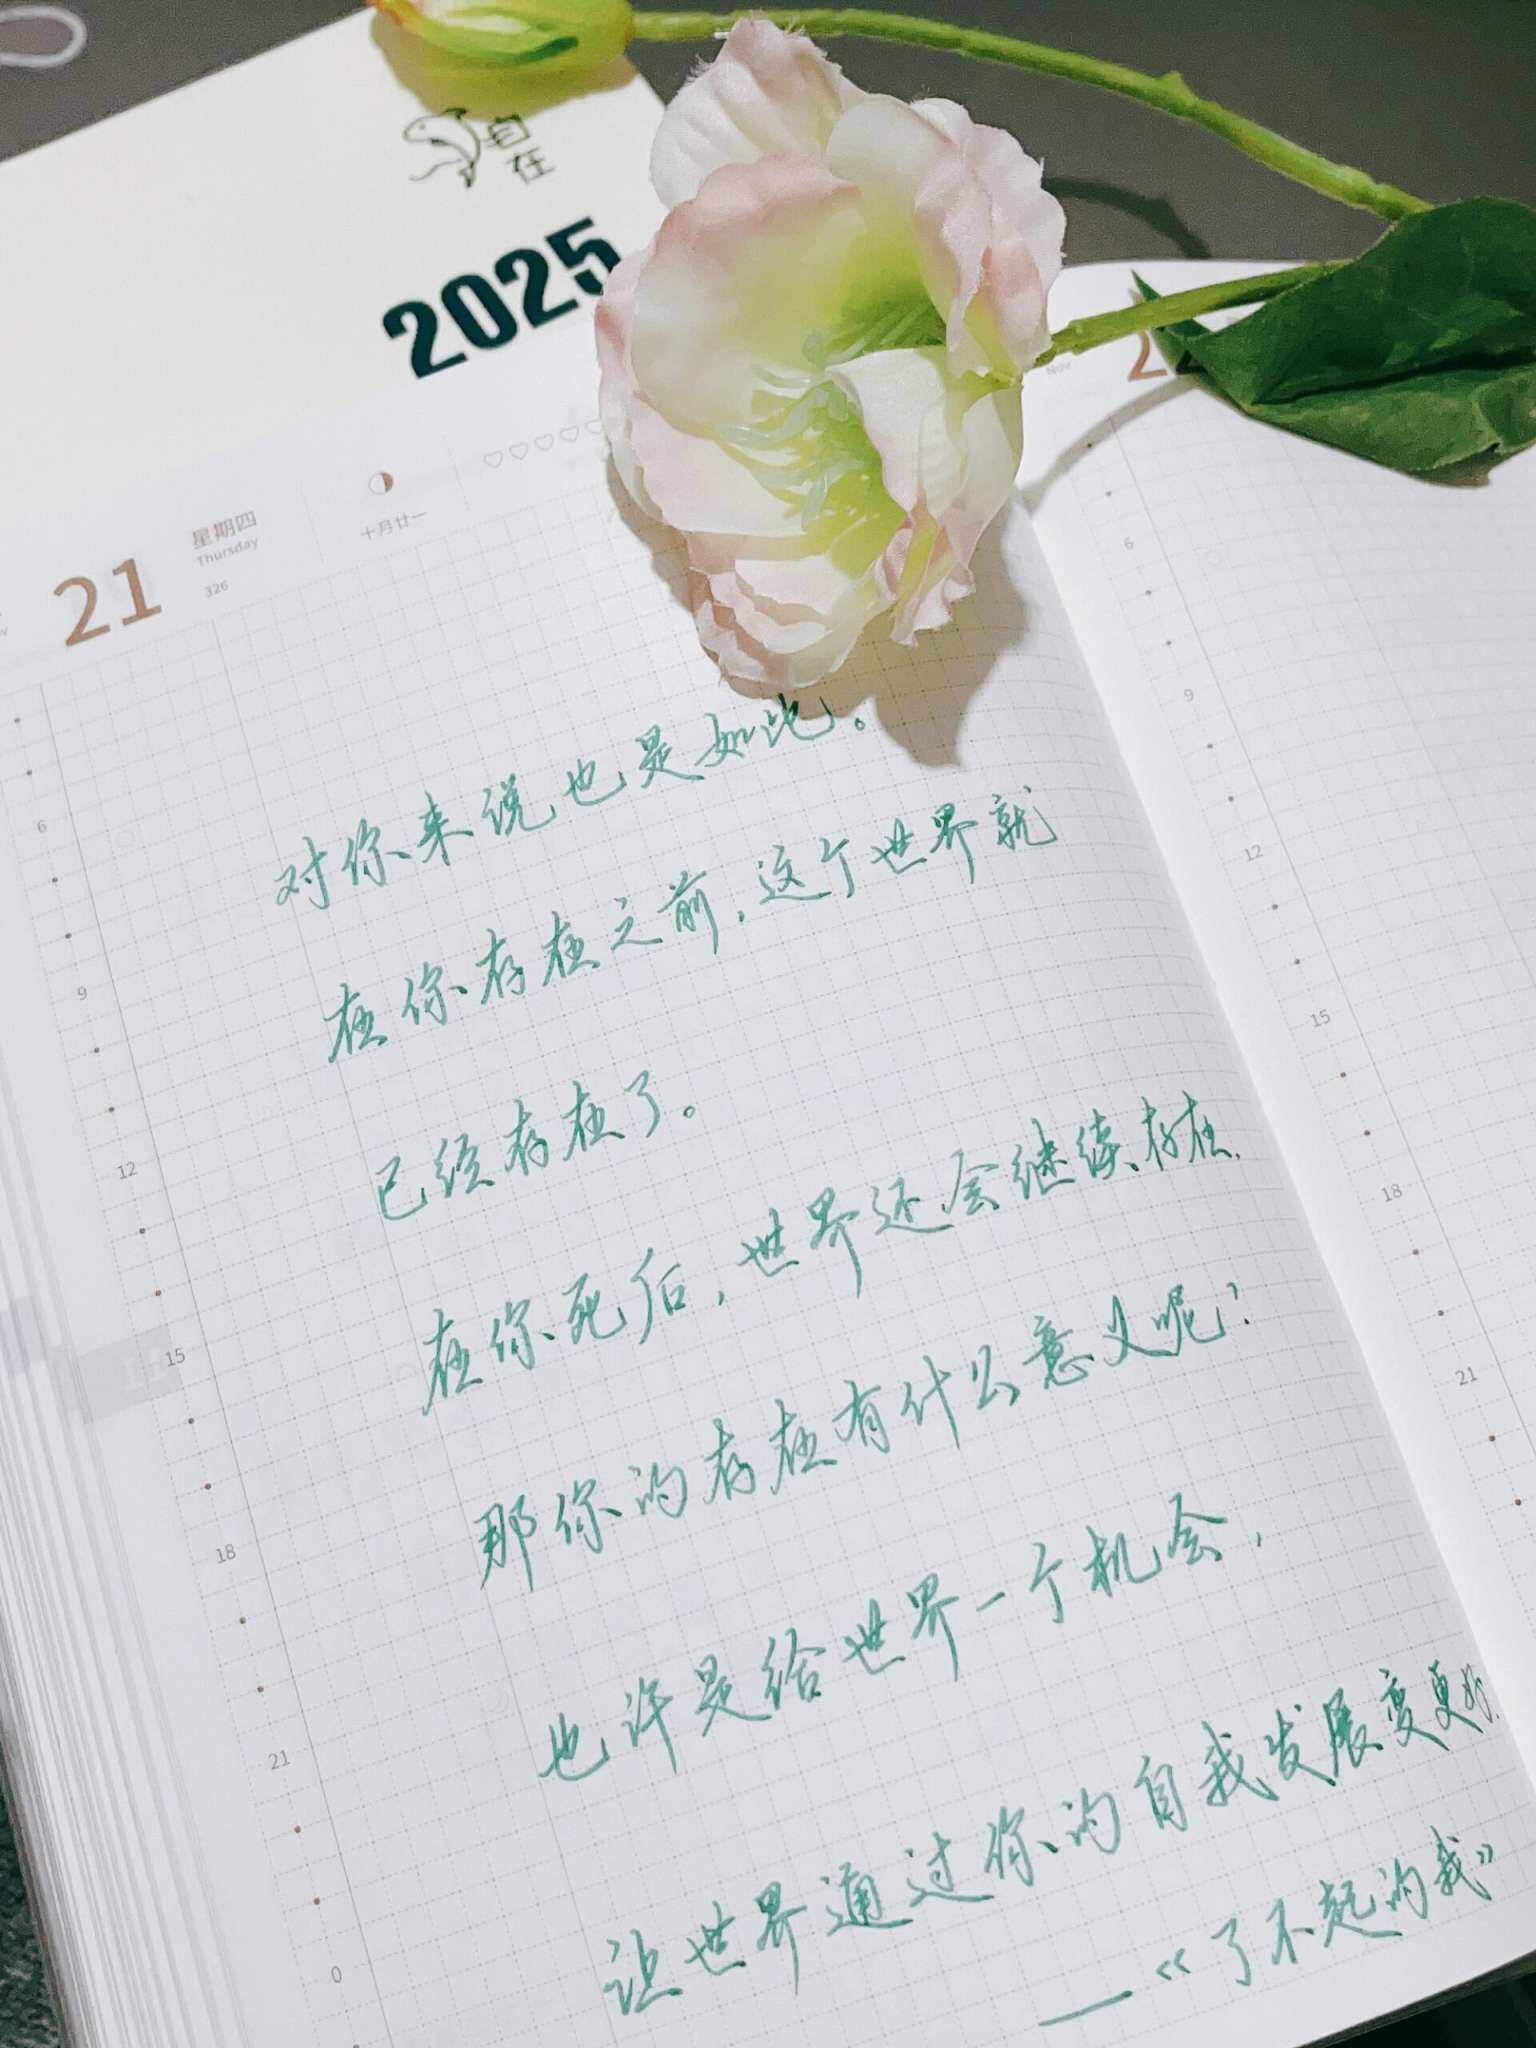 自在
2025
Nov
21
星期四
Thursday
326
十月廿一
对你来说也是如此。
在你存在之前，这个世界就
已经存在了。
在你死后，世界还会继续存在.
那你的存在有什么意义呢？
也许是给世界一个机会，
让世界通过你的自我发展变更好.
——《了不起的我》
6
9
12
15
18
21
0
6
9
12
15
18
21